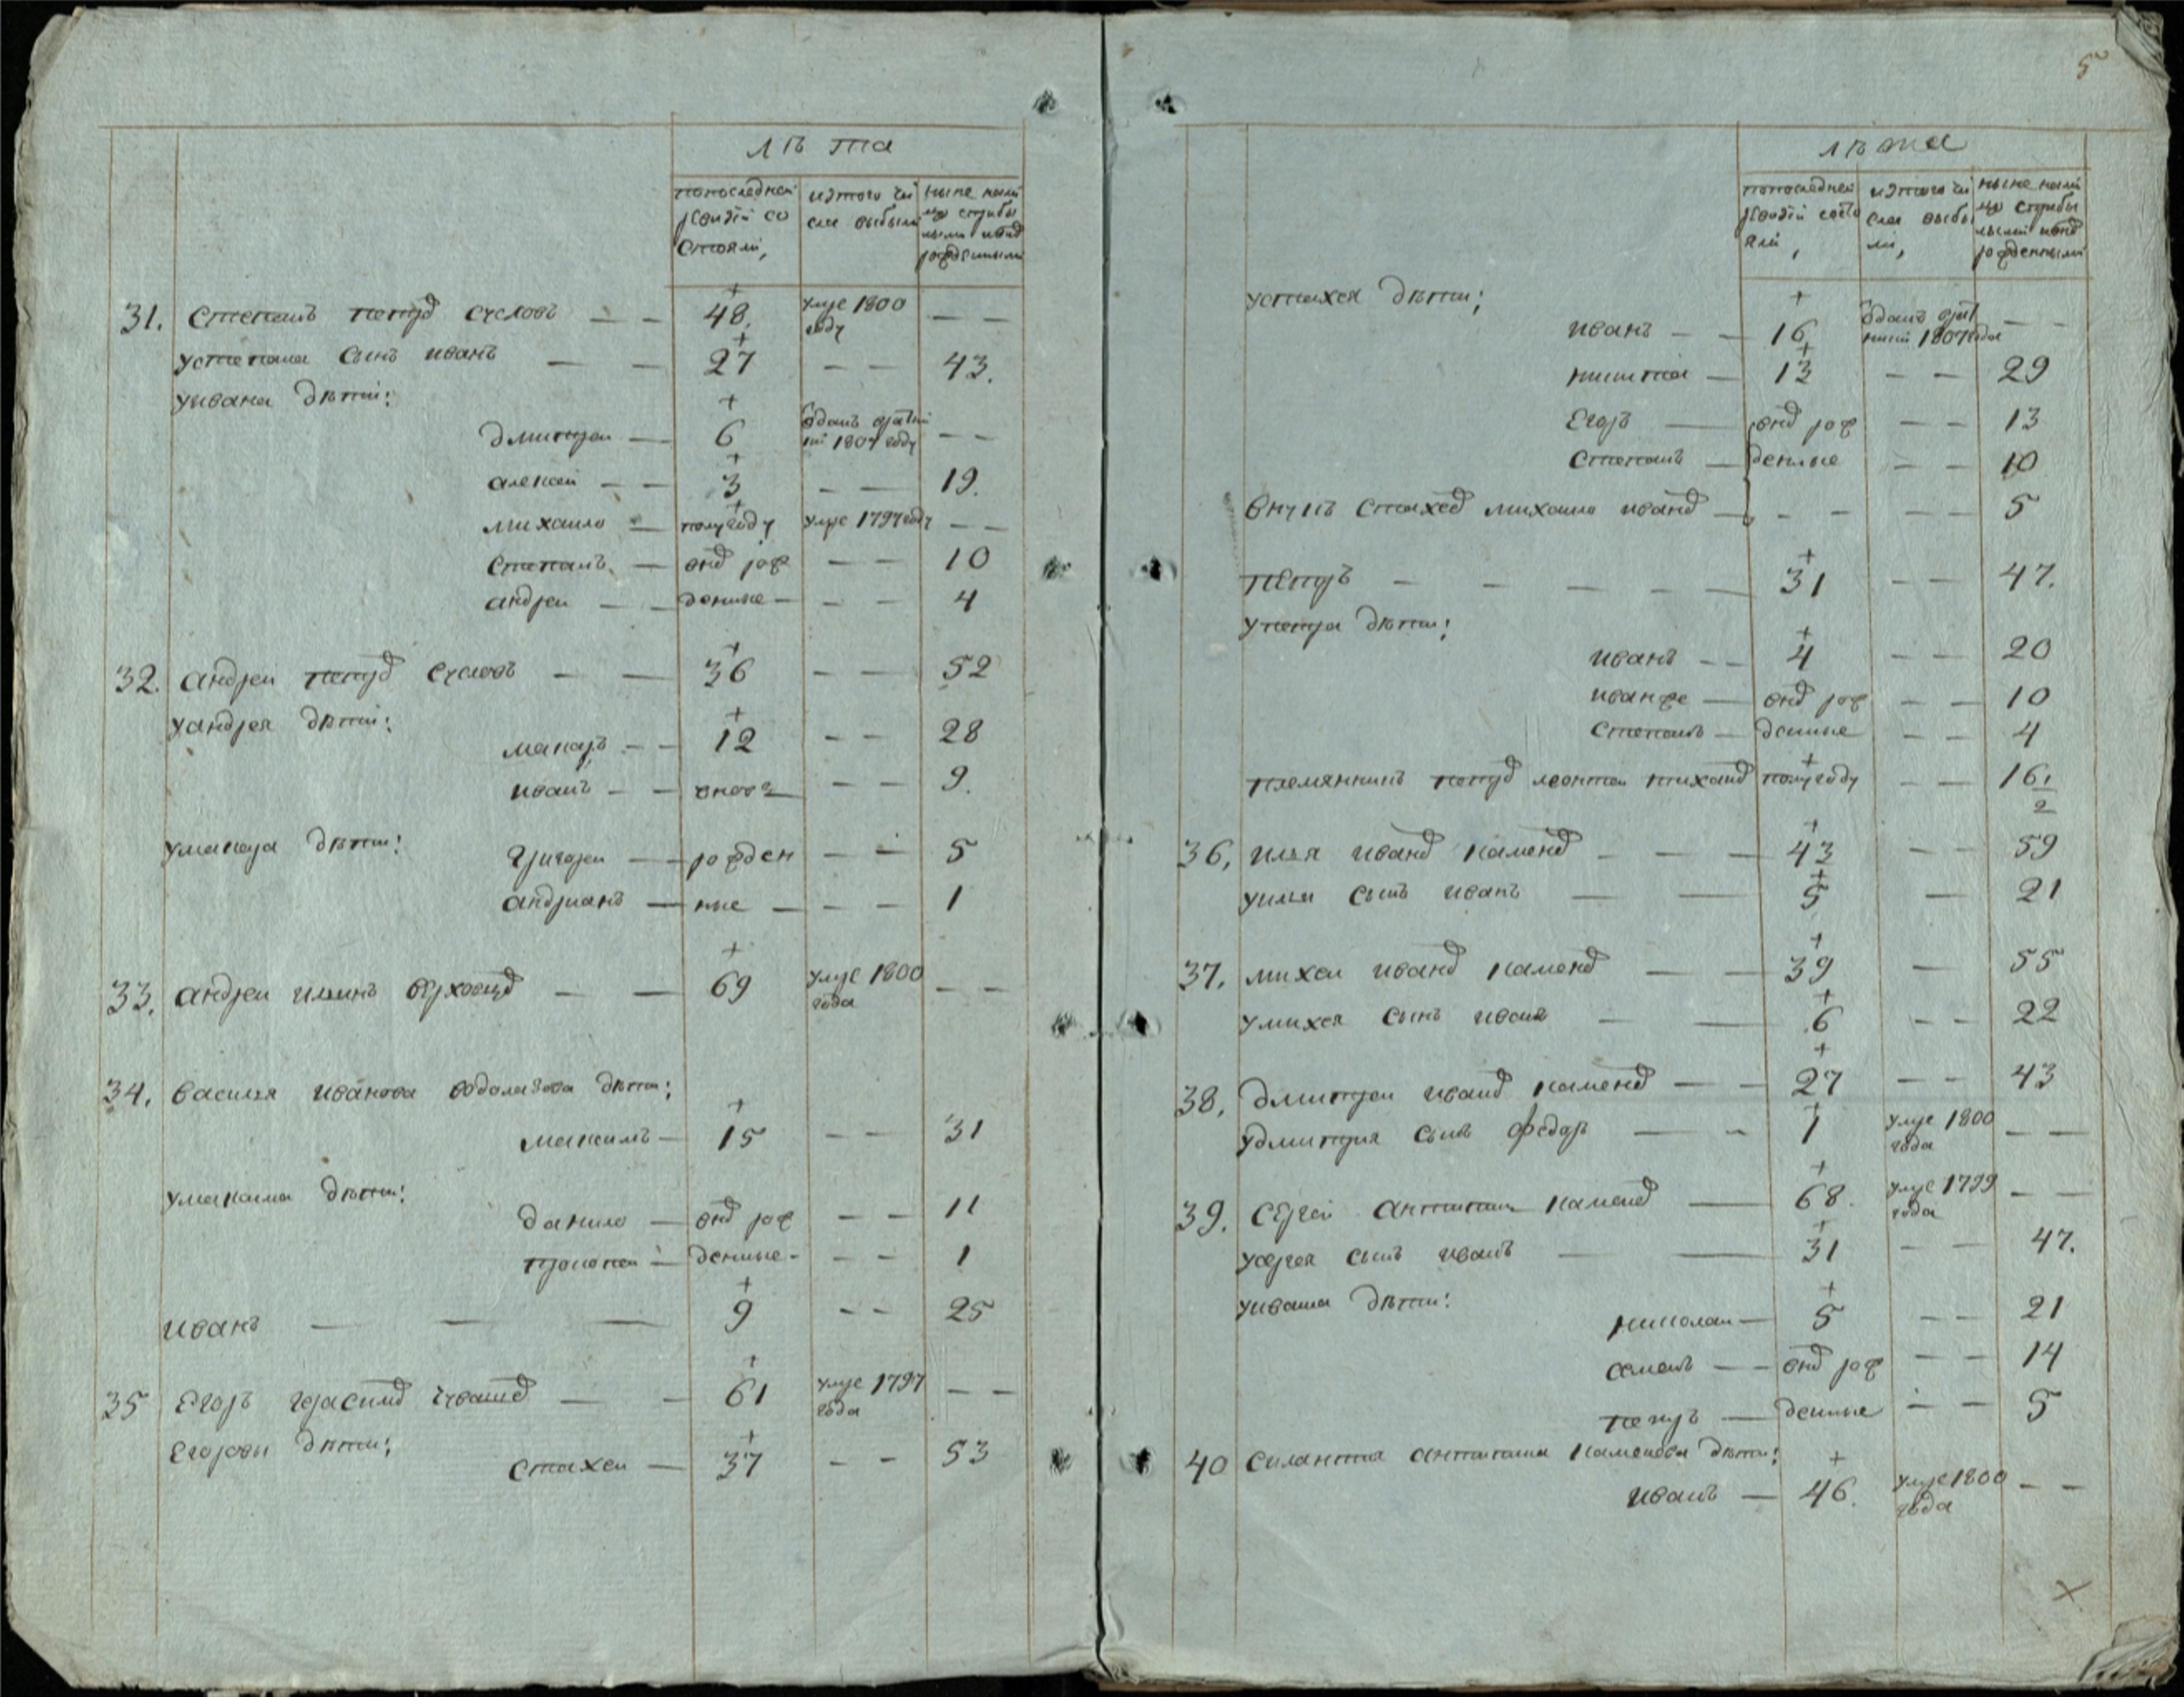 лѣта
попоследнеи ревизiи состояли,
изтого числа выбыли
31. степанъ петров сусловъ — — 48. умре 1800 году — —
устепана сынъ иванъ — — 27 — — 43.
уивана дѣти:
дмитреи — 6 отданъ врекруты 1807 году — —
алексеи — — 3 — — 19.
михаило — полугоду умре 1797 году — —
степанъ — внов рож — — 10
андреи — — денные — — — 4
32. андреи петров сусловъ — — 36 — — 52
уандрея дѣти:
макаръ — — 12 — — 28
иванъ — — вновъ — — 9.
умакара дѣти:
григореи — рожден — — 5
андрианъ — ные — — — 1
33. андреи ильинъ — — 69 умре 1800 года — —
34. василья иванова водолазова дѣти:
максимъ — 15 — — 31
умаксима дѣти:
данило — внов рож — — 11
прокопеи — денные — — — 1
иванъ — — — 9 — — 25
35 Егоръ герасимов чувашев — — 61 умре 1797 года — —
Егоровы дѣти:
стахеи — 37 — — 53
5
лѣта
попоследнеи ревизiи состояли,
изтого числа выбыли,
устахея дѣти:
иванъ — — 16 отданъ 1807 года — —
никита — 13 — — 29
Егоръ — внов рож — — 13
степанъ — денные — — 10
внукъ стахеев михаило иванов — — — — — 5
петръ — — — — — 31 — — 47.
упетра дѣти:
иванъ — — 4 — — 20
иванже — внов рож — — 10
степанъ — денные — — 4
племянникъ петров леонтеи тиханов полугоду — — 16 1/2
36, илья иванов каменев — — — 43 — — 59
уильи сынъ иванъ — — 5 — 21
37. михеи иванов каменев — — 39 — 55
умихея сынъ иванъ — — 6 — — 22
38, дмитреи иванов каменев — — 27 — — 43
удмитрия сынъ федоръ — — 1 умре 1800 года — —
39. сергеи антипинъ каменев — 68. умре 1799 года — —
усергея сынъ иванъ — — 31 — — 47.
уивана дѣти:
николаи — 5 — — 21
семенъ — — внов рож — — 14
петръ — денные — — 5
40 силантия антипина каменева дѣти:
иванъ — 46. умре 1800 года — —